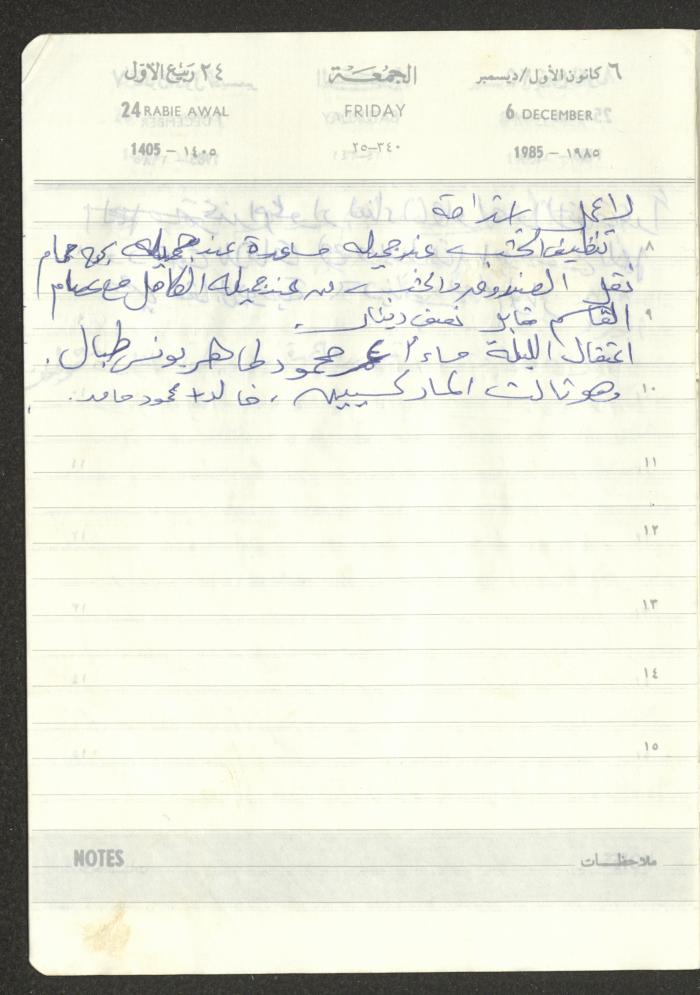 ٦ كانون الأول/ديسمبر الجمعة ٢٤ ربيع الأول
6 DECEMBER FRIDAY 24 RABIE AWAL
1985 – ١٩٨٥ ٣٤٠–٢٥ 1405 – ١٤٠٥
لا عمل استراحة
٨
تنظيف الخشب عند جميله مساعدة عند جميله حمام
نقل الصندوق والخشب من عند جميله الكامل مع عصام
٩
القاسم مقابل نصف دينار.
اعتقال الليلة مساءً محمود طاهر يونس طبال.
١٠
وهو ثالث الماركسيين، خالد + محمود حامد.
١١
١٢
١٣
١٤
١٥
NOTES ملاحظات